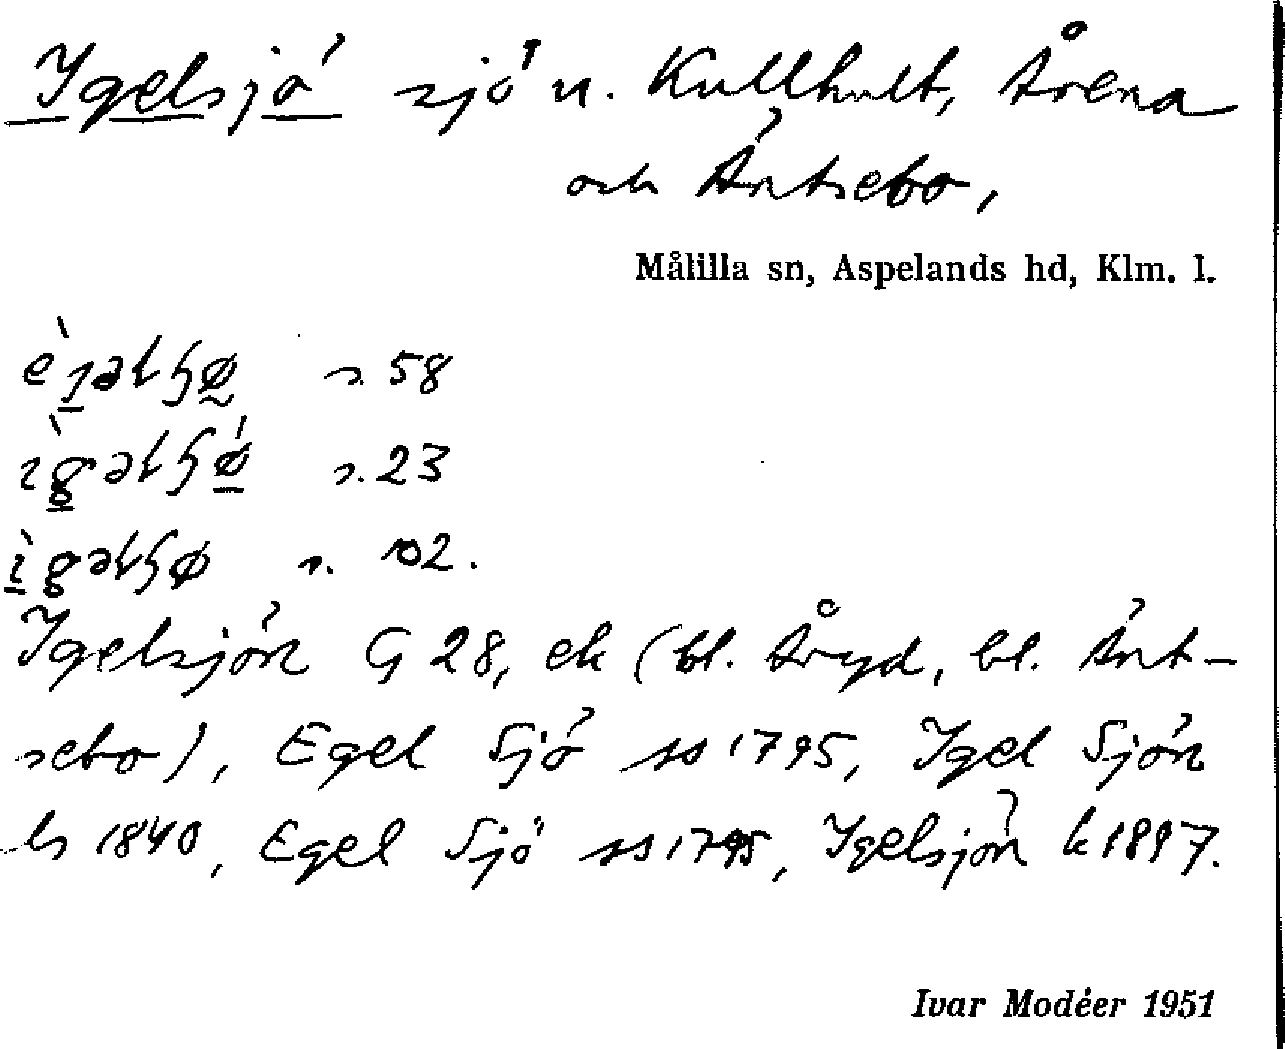 Igelsjö sjö u. Kullhult, Årena
och Äntsebo,
Målilla sn, Aspelands hd, Klm. l.
s. 58
s. 23
s. 102.
Igelsjön G 28, ek (bl. Åryd, bl. Änt-
sebo), Egel Sjö ss 1795, Igel Sjön
ls 1840, Egel Sjö ss 1795, Igelsjön k 1897.
Ivar Modéer 1951